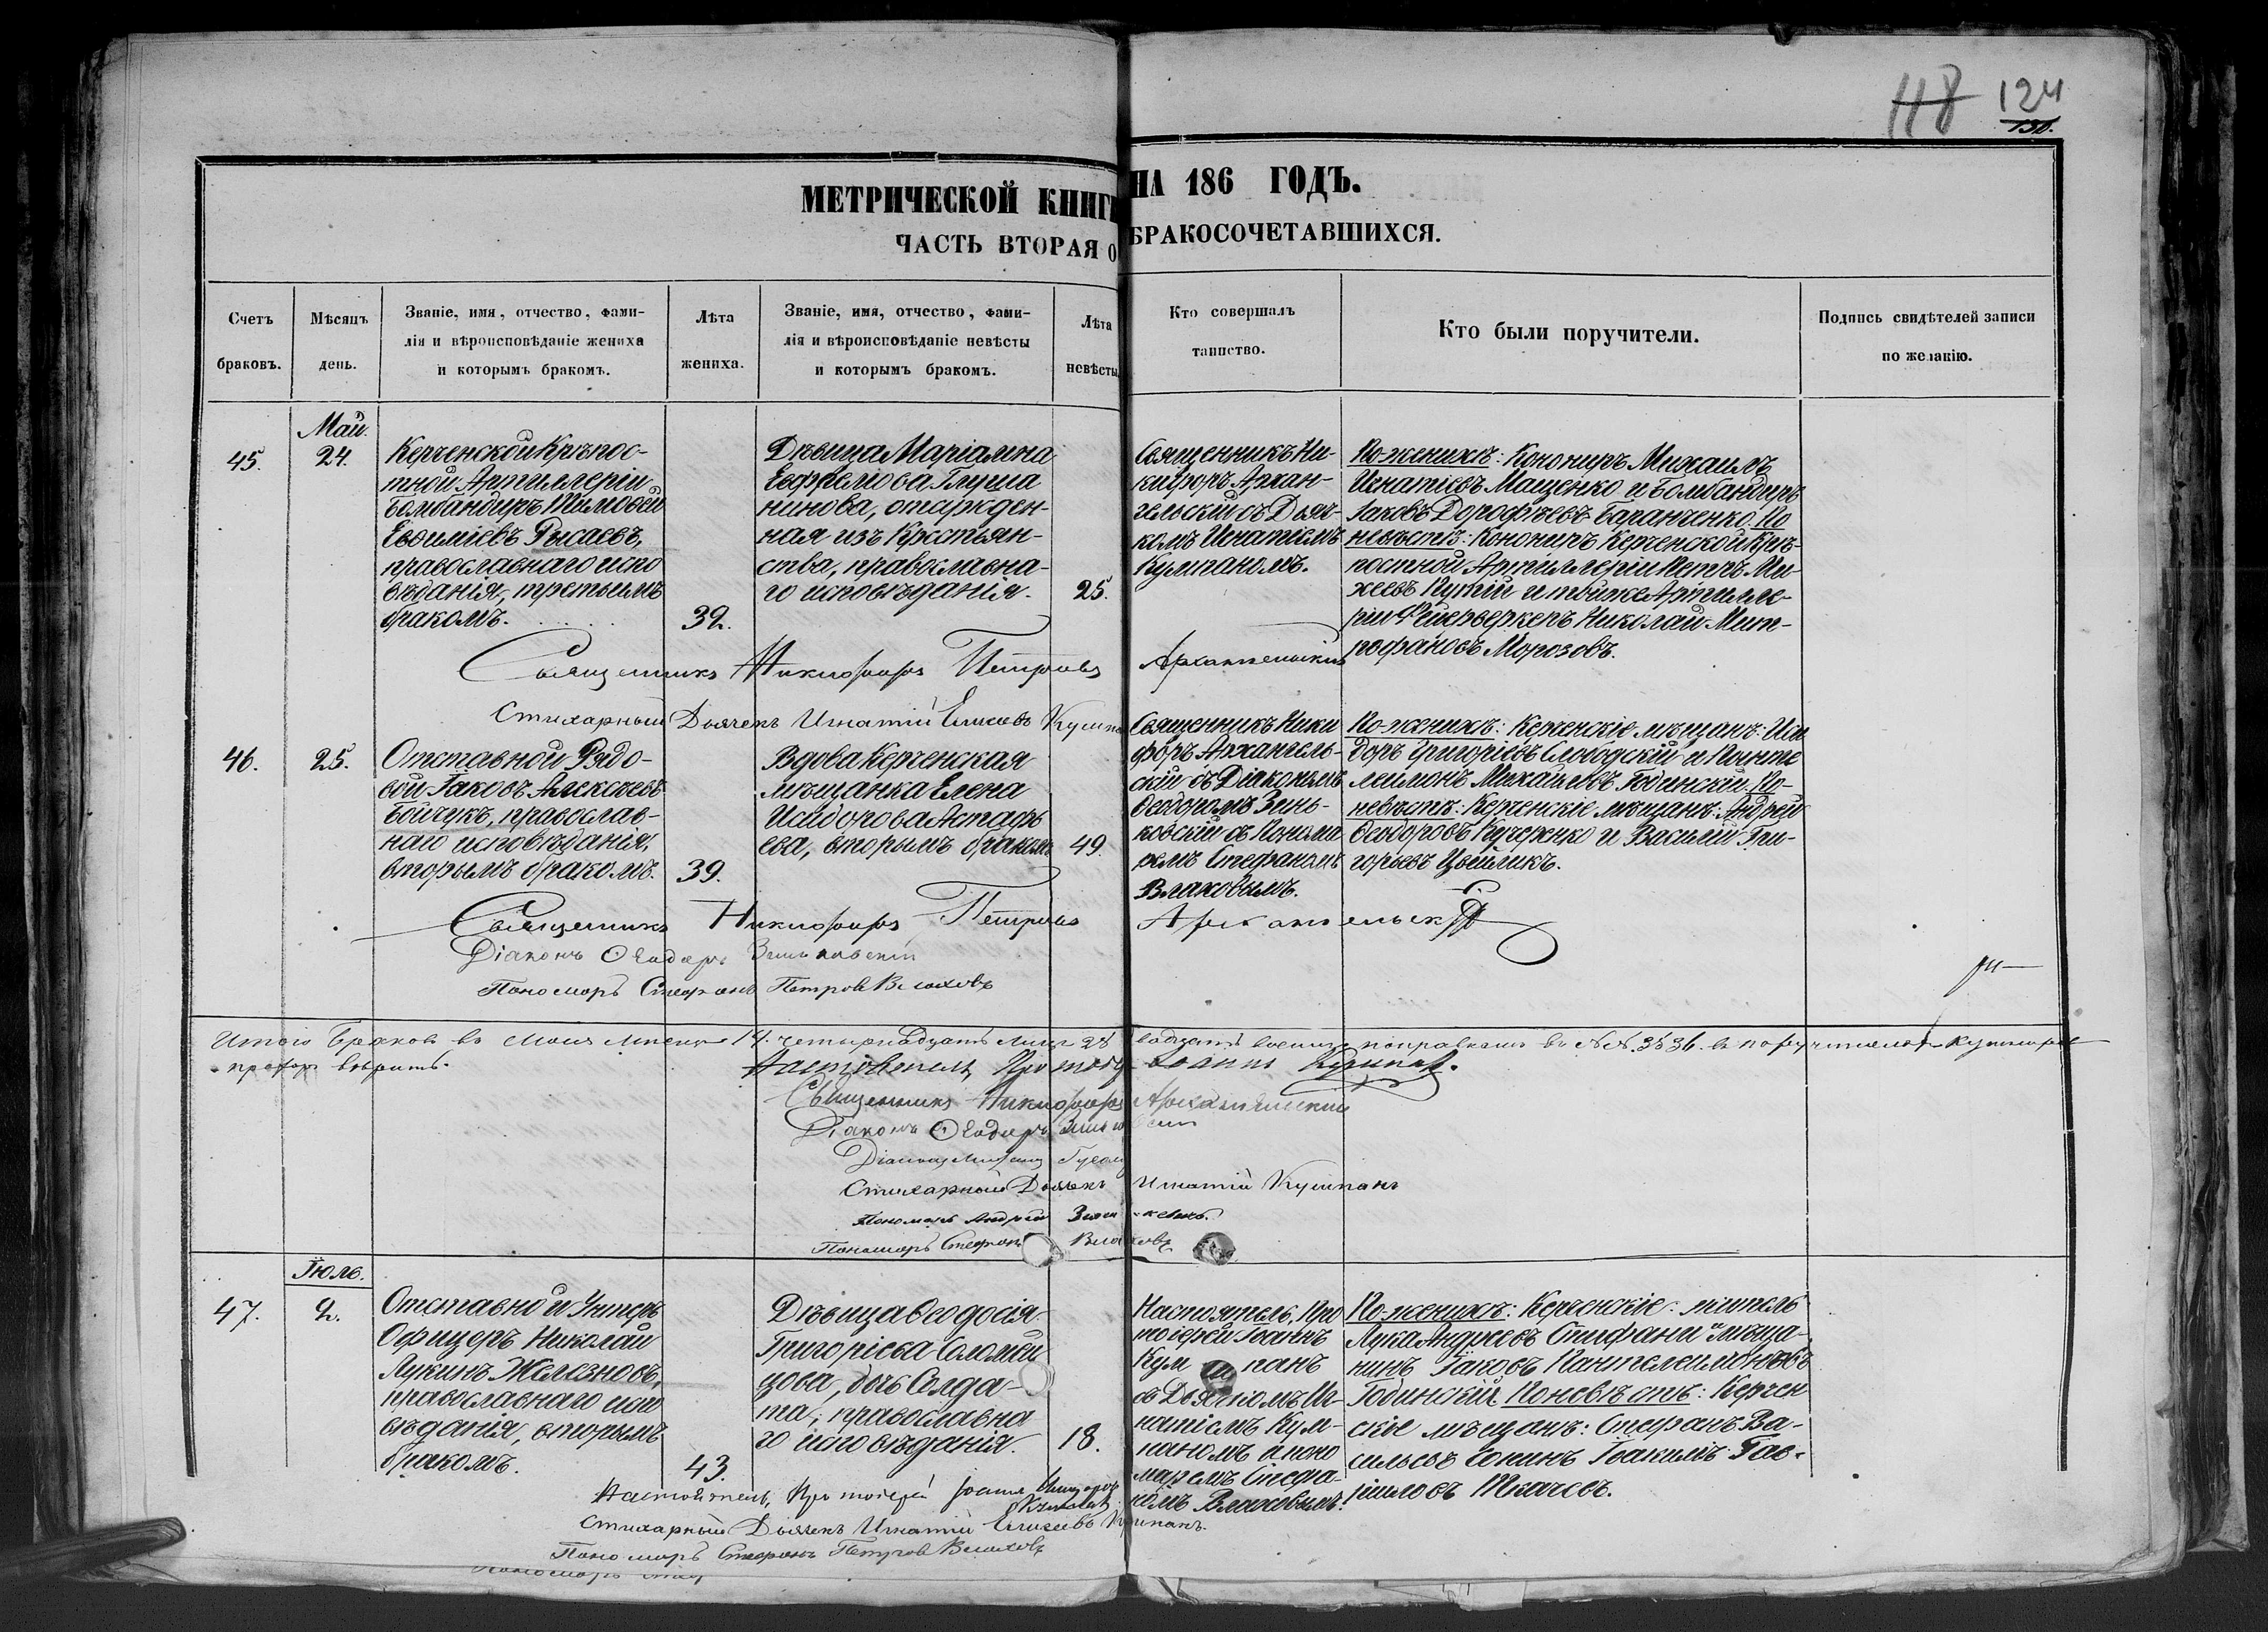 118 124
130.
МЕТРИЧЕСКОЙ КНИГИ НА 186 ГОДЪ.
ЧАСТЬ ВТОРАЯ О БРАКОСОЧЕТАВШИХСЯ.
Счетъ
браковъ.
Мѣсяцъ
день.
Званіе, имя, отчество, фами-
лія и вѣроисповѣданіе жениха
и которымъ бракомъ.
Лѣта
жениха.
Званіе, имя, отчество, фами-
лія и вѣроисповѣданіе невѣсты
и которымъ бракомъ.
Лѣта
невѣсты.
Кто совершалъ
таинство.
Кто были поручители.
Подпись свидѣтелей записи
по желанію.
45.
Май.
24.
Керченской Крѣпос-
тной Артиллеріи
Бомбандиръ Тимофей
Евѳиміевъ Рысаевъ,
православнаго испо
вѣданія, третьимъ
бракомъ.
39.
Дѣвица Маріамна
Евфимова Глуща
нинова, отсужден-
ная изъ Крестьян-
ства, православна-
го исповѣданія.
25.
Священникъ Ни-
кифоръ Архан-
гельскій съ Дьяч-
комъ Игнатіемъ
Кумпаномъ.
По женихѣ: Кононирѣ Михаилъ
Игнатіевъ Мащенко и Бомбандиръ
Іаковъ Дорофѣевъ Баранченко. По
невѣстѣ: Кононирѣ Керченской Крѣ-
постной Артиллеріи Петръ Ми-
хеевъ Путій и тойже Артилле-
ріи Фейерверкеръ Николай Мит-
рофановъ Морозовъ.
Священникъ Никифоръ Петровъ Архангельскій
Стихарный Дьячекъ Игнатій Елисѣевъ
46.
25.
Отставной Рядо-
вой Іаковъ Алексѣевъ
Бойчукъ, православ-
наго исповѣданія,
вторымъ бракомъ.
39.
Вдова Керченская
мѣщанка Елена
Исидорова Астафь
ева, вторымъ бракомъ
49.
Священникъ Ники
форъ Архангель-
скій съ Діакономъ
Ѳеодоромъ Зинь-
ковскій съ Понома
ремъ Стефаномъ
Влаховымъ.
По женихѣ: Керченскіе мѣщане: Иси
доръ Григоріевъ Слободскій и Панте
леимонъ Михайловъ Годинскій. По-
невѣстѣ: Керченскіе мѣщане: Андрей
Ѳеодоровъ Кучеренко и Василій Гри-
горьевъ Цвѣликъ.
Священникъ Никифоръ Петровъ Архангельскій
Діаконъ Ѳеодоръ Зиньковскій
Пономарь Стефанъ Петровъ Влаховъ
Итого браковъ въ Маѣ мѣсяцѣ 14. четырнадцать лицъ 28 двадцать восемь поправкамъ въ №№. 35 36. въ поручителяхъ
вѣрить.
Настоятель, Протоіерей Іоаннъ Кумпанъ.
Священникъ Никифоръ Архангельскій
Діаконъ Ѳеодоръ
Діаконъ
Стихарный Дьячекъ Игнатій Кумпанъ
Пономарь Андрей
Пономарь Стефанъ Влаховъ
47.
Іюль.
2.
Отставной Унтеръ
Офицеръ Николай
Лукинъ Желѣзновъ,
православнаго испо
вѣданія, вторымъ
бракомъ.
43.
Дѣвица Ѳеодосія
Григоріева Соломій
цова, дочь Солда-
та, православна
го исповѣданія.
18.
Настоятель, Про
тоіерей Іоаннъ
Кумпанъ
съ Дьячкомъ Иг-
натіемъ Кум-
паномъ и поно
маремъ Стефа-
номъ Влаховымъ.
По женихѣ: Керченскіе: житель
Лука Андреевъ Стифани и мѣща-
нинъ Іаковъ Пантелеимоновъ
Годинскій. По невѣстѣ: Керчен
скіе мѣщане: Стефанъ Ва-
сильевъ Сопинъ Іоакимъ Гав-
ріиловъ Ткачевъ.
Настоятель, Протоіерей Іоаннъ
Кумпанъ
Стихарный Дьячекъ Игнатій Елисѣевъ Кумпанъ.
Пономарь Стефанъ Петровъ Влаховъ